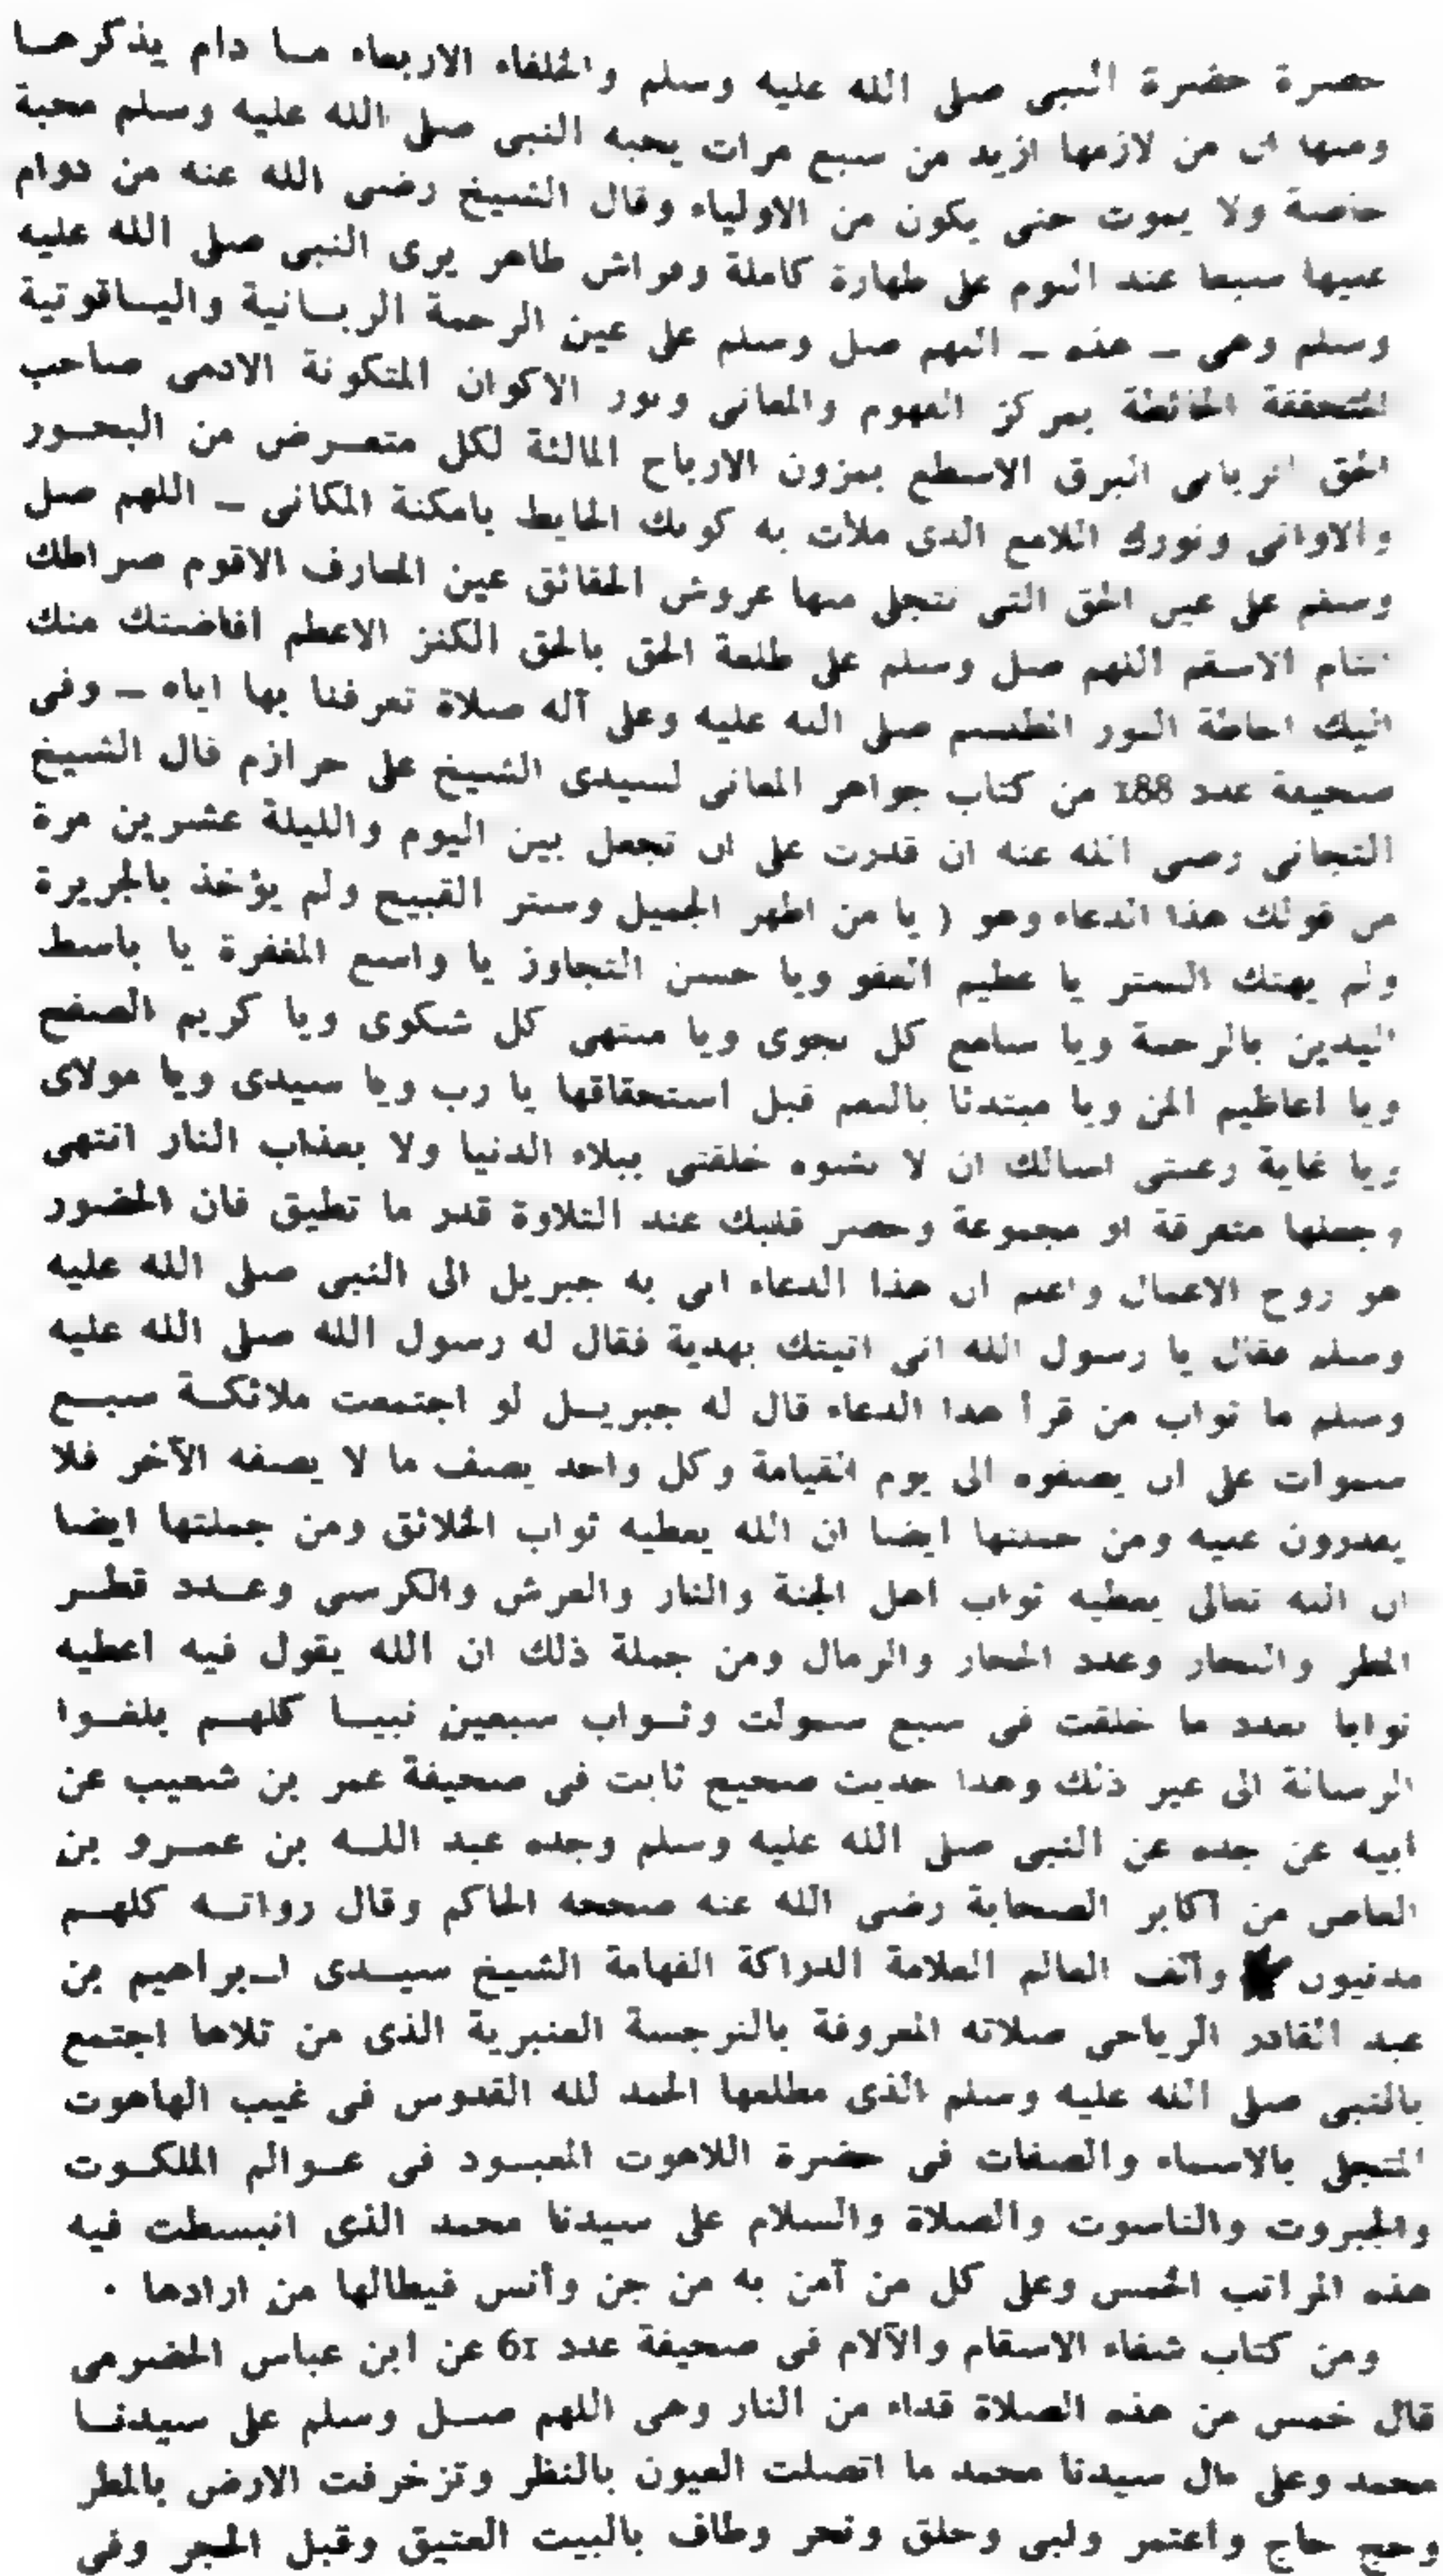 حضرة حضرة النبى صلى الله عليه وسلم والخلفاء الاربعاء ما دام يذكرها
ومنها ان من لازمها ازيد من سبع مرات يحبه النبى صلى الله عليه وسلم محبة
خاصة ولا يموت حتى يكون من الاولياء وقال الشيخ رضى الله عنه من دوام
عليها سبعا عند النوم على طهارة كاملة وفراش طاهر يرى النبى صلى الله عليه
وسلم وهى ـ هذه ـ اللهم صل وسلم على عين الرحمة الربانية والياقوتية
المتحققة الحائطة بمركز الفهوم والمعانى ونور الاكوان المتكونة الادمى صاحب
الحق الربانى البرق الاسطع بمزون الارباح المالئة لكل متعرض من البحور
والاوانى ونورك اللامع الذى ملأت به كونك الحايط بامكنة المكانى ـ اللهم صل
وسلم على عين الحق التى تتجلى منها عروش الحقائق عين المعارف الاقوم صراطك
التام الاسقم اللهم صل وسلم على طلعة الحق بالحق الكنز الاعظم افاضتك منك
اليك احاطة النور المطلسم صلى الله عليه وعلى آله صلاة تعرفنا بها اياه ـ وفى
صحيفة عدد 188 من كتاب جواهر المعانى لسيدى الشيخ على حرازم قال الشيخ
التجانى رضى الله عنه ان قدرت على ان تجعل بين اليوم والليلة عشرين مرة
من قولك هذا الدعاء وهو ( يا من اظهر الجميل وستر القبيح ولم يؤخذ بالجريرة
ولم يهتك الستر يا عظيم العفو ويا حسن التجاوز يا واسع المغفرة يا باسط
اليدين بالرحمة ويا سامع كل نجوى ويا منتهى كل شكوى ويا كريم الصفح
ويا اعاظيم المن ويا مبتدئا بالنعم قبل استحقاقها يا رب ويا سيدى ويا مولاى
ويا غاية رغبتى اسالك ان لا تشوه خلقتى ببلاء الدنيا ولا بعذاب النار انتهى
وجعلها متفرقة او مجموعة وحضر قلبك عند التلاوة قدر ما تطيق فان الحضور
هو روح الاعمال واعلم ان هذا الدعاء اتى به جبريل الى النبى صلى الله عليه
وسلم فقال يا رسول الله انى اتيتك بهدية فقال له رسول الله صلى الله عليه
وسلم ما ثواب من قرأ هذا الدعاء قال له جبريل لو اجتمعت ملائكة سبع
سموات على ان يصفوه الى يوم القيامة وكل واحد يصف ما لا يصفه الآخر فلا
يقدرون عليه ومن جملتها ايضا ان الله يعطيه ثواب الخلائق ومن جملتها ايضا
ان الله تعالى يعطيه ثواب اهل الجنة والنار والعرش والكرسى وعدد قطر
المطر والبحار وعدد الحجار والرمال ومن جملة ذلك ان الله يقول فيه اعطيه
ثوابا بعدد ما خلقت فى سبع سمولت وثواب سبعين نبيا كلهم بلغوا
الرسالة الى غير ذلك وهذا حديث صحيح ثابت فى صحيفة عمر بن شعيب عن
ابيه عن جده عن النبى صلى الله عليه وسلم وجده عبد الله بن عمرو بن
العاص من اكابر الصحابة رضى الله عنه صححه الحاكم وقال رواته كلهم
مدنيون وألف العالم العلامة الدراكة الفهامة الشيخ سيدى ابراهيم بن
عبد القادر الرياحى صلاته المعروفة بالنرجسة العنبرية الذى من تلاها اجتمع
بالنبى صلى الله عليه وسلم الذى مطلعها الحمد لله القدوس فى غيب الهاهوت
المتجلى بالاسماء والصفات فى حضرة اللاهوت المعبود فى عوالم الملكوت
والجبروت والناسوت والصلاة والسلام على سيدنا محمد الذى انبسطت فيه
هذه المراتب الخمس وعلى كل من آمن به من جن وأنس فيطالها من ارادها .
ومن كتاب شفاء الاسقام والآلام فى صحيفة عدد 61 عن ابن عباس الحضرمى
قال خمس من هذه الصلاة قداء من النار وهى اللهم صل وسلم على سيدنا
محمد وعلى مال سيدنا محمد ما اتصلت العيون بالنظر وتزخرفت الارض بالمطر
وحج حاج واعتمر ولبى وحلق ونحر وطاف بالبيت العتيق وقبل الحجر وفى